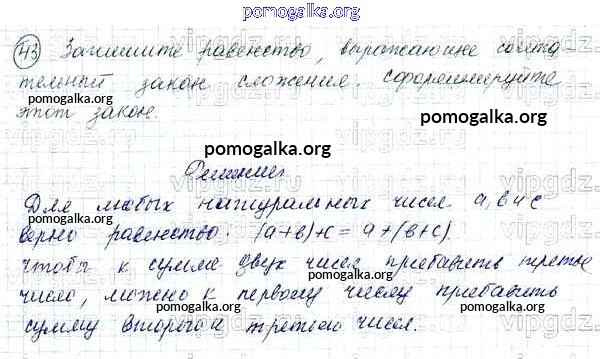 pomogalka.org
43 Запишите равенство, выражающие сочета-
тельный закон сложения. сформулируйте
pomogalka.org pomogalka.org
этот закон.
pomogalka.org
Решение
Для любых натуральных чисел a, b и c
pomogalka.org pomogalka.org
верно равенство: (a+b)+c = a+(b+c).
чтобы к сумме двух чисел прибавить третье
число, можно к первому числу прибавить
pomogalka.org pomogalka.org
сумму второго и третьего чисел.